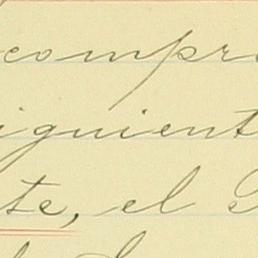 compr
iguient
te, el